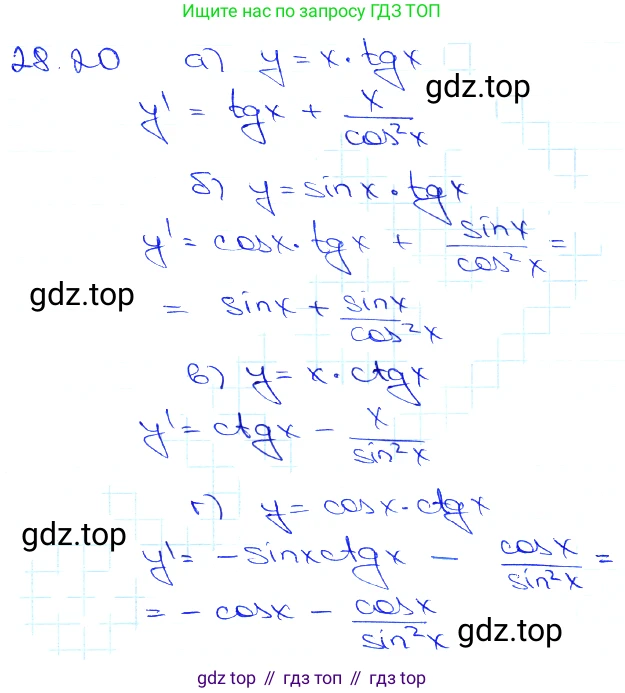 Ищите нас по запросу ГДЗ ТОП
28.20 а) y = x · tgx
gdz.top
y' = tgx + x/cos²x
б) y = sinx · tgx
y' = cosx · tgx + sinx/cos²x =
gdz.top
= sinx + sinx/cos²x
в) y = x · ctgx
y' = ctgx - x/sin²x
г) y = cosx · ctgx
gdz.top
y' = -sinxctgx - cosx/sin²x =
= -cosx - cosx/sin²x
gdz.top
gdz top // гдз топ // гдз top